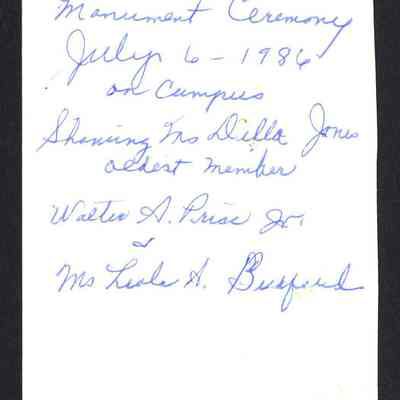 Monument Ceremony
July 6 - 1986
on Campus
Showing Ms Della Jones
oldest member
Walter A. Price Jr.
&
Ms A. Buxford